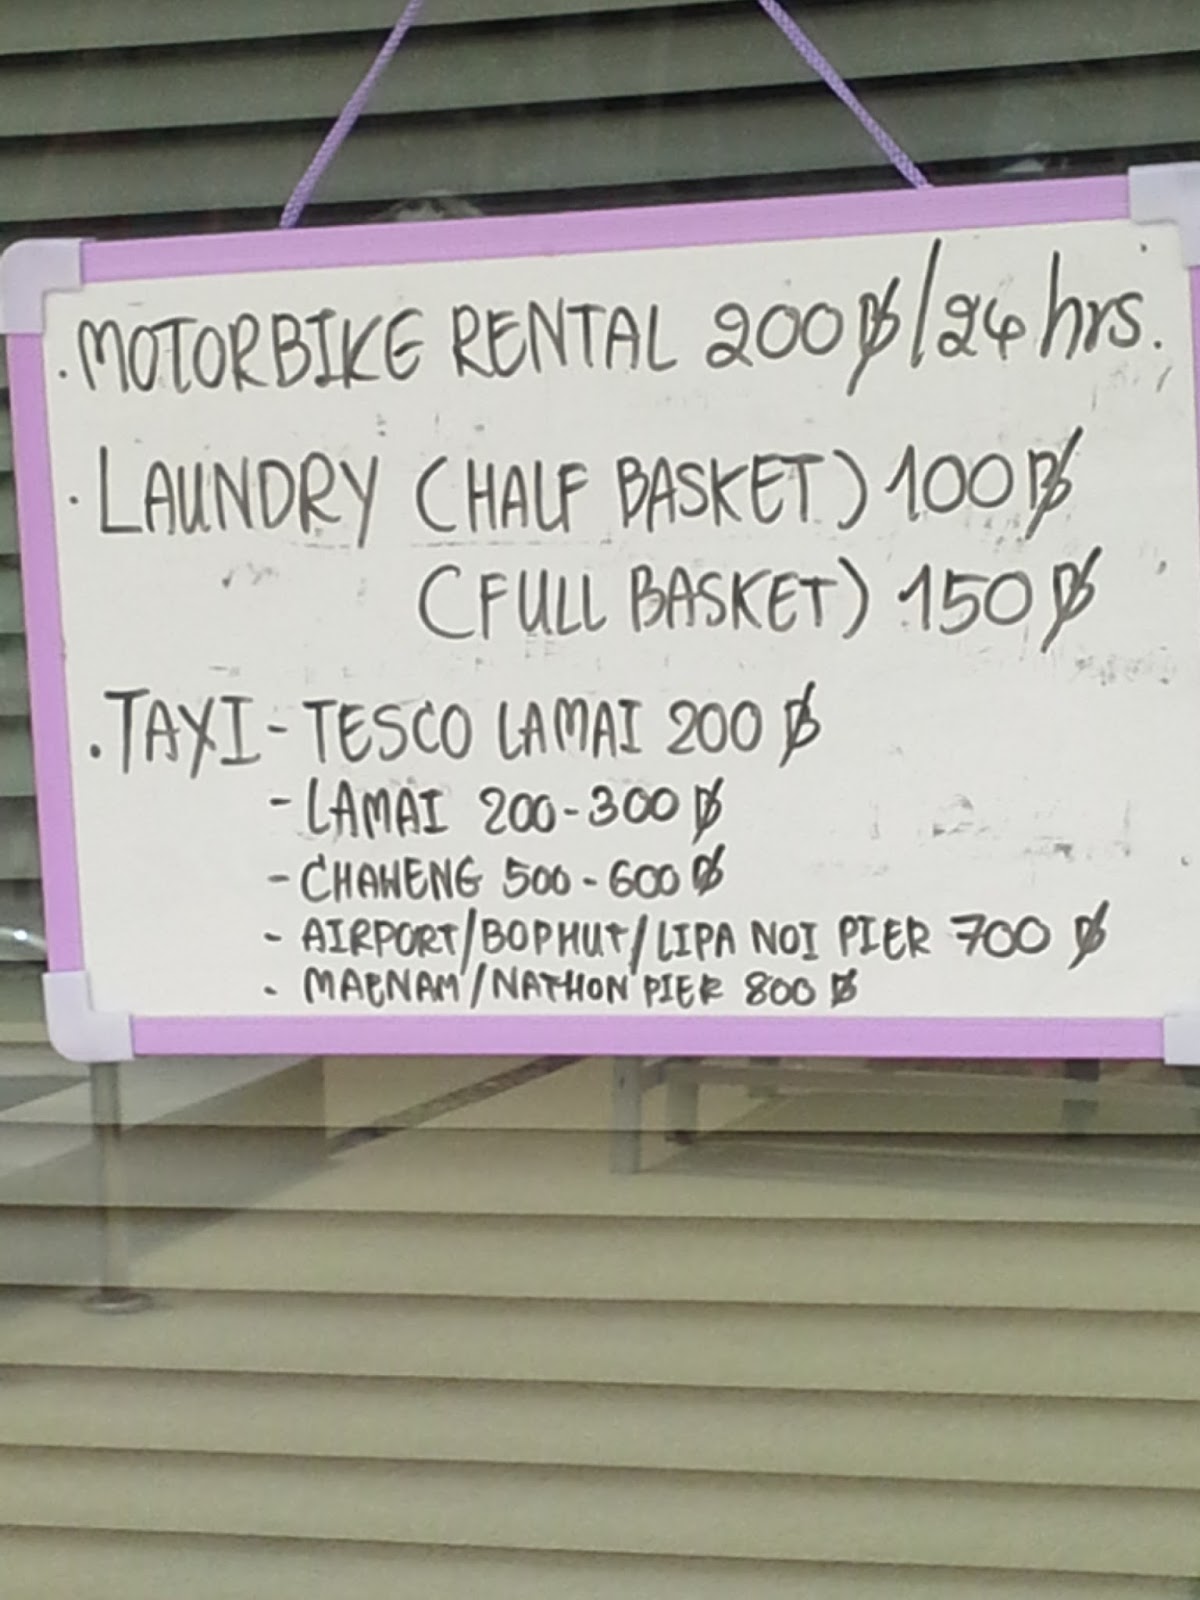 . MOTORBIKE RENTAL 200฿/24 hrs.
. LAUNDRY (HALF BASKET) 100฿
(FULL BASKET) 150฿
. TAXI - TESCO LAMAI 200 ฿
- LAMAI 200-300 ฿
- CHAWENG 500-600 ฿
- AIRPORT/BOPHUT/LIPA NOI PIER 700 ฿
- MAENAM/NATHON PIER 800 ฿